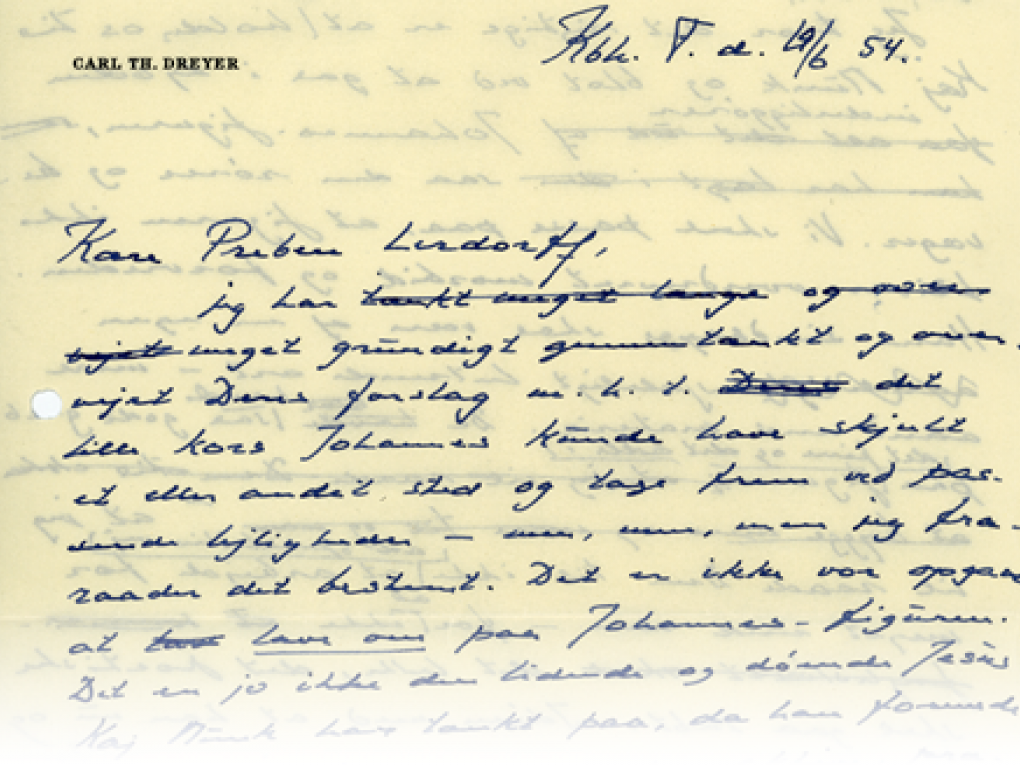 CARL TH. DREYER
Kbh. F. d. 19/6 54.
Kære Preben Lerdorff,
jeg har tænkt meget længe og over-
vejet meget grundigt gennemtænkt og over-
vejet Deres forslag m.h.t. Deres det
lille kors Johannes kunde have skjult
et eller andet sted og tage frem ved pas-
sende lejligheder – men, men, men jeg fra-
raader det bestemt. Det er ikke vor opgave
at lave om paa Johannes-figuren.
Det er jo ikke den lidende og døende Jesus
Kaj Munk har tænkt paa, da han formede